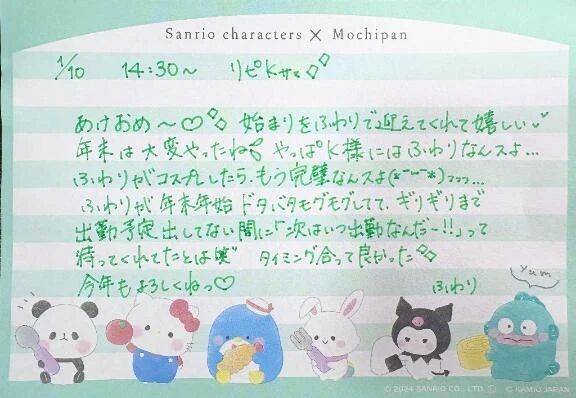 Sanrio characters × Mochipan
1/10 14:30～ リピKサマ
あけおめ～♡ 始まりをふわりで迎えてくれて嬉しい
年末は大変やったね やっぱK様にはふわりなんスよ…
ふわりがコスプレしたら、もう完璧なんスよ(*˘︶˘*)ﾌﾌﾌ…
ふわりが年末年始ドタバタモグモグしてて、ギリギリまで
出勤予定出してない間に「次はいつ出勤なんだー!!」って
待ってくれてたとは笑 タイミング合って良かった
今年もよろしくねっ♡ ふわり
yum
© 2024 SANRIO CO., LTD. Ⓛ © KAMIO JAPAN